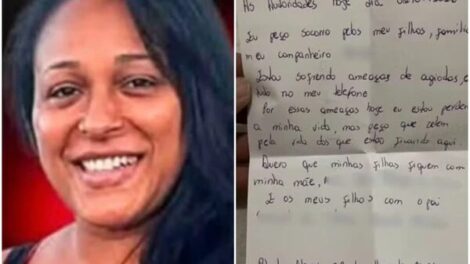 As Autoridades hoje dia
Eu peço socorro pelos meu filhos, família
meu companheiro
Estou sofrendo ameaças de agiotas, e
tudo no meu telefone
Por essas ameaças hoje eu estou perden
a minha vida, mas peço que zelem
pela vida dos que estão ficando aqui
Quero que minhas filhas fiquem com
minha mãe,
E os meus filhos com o pai